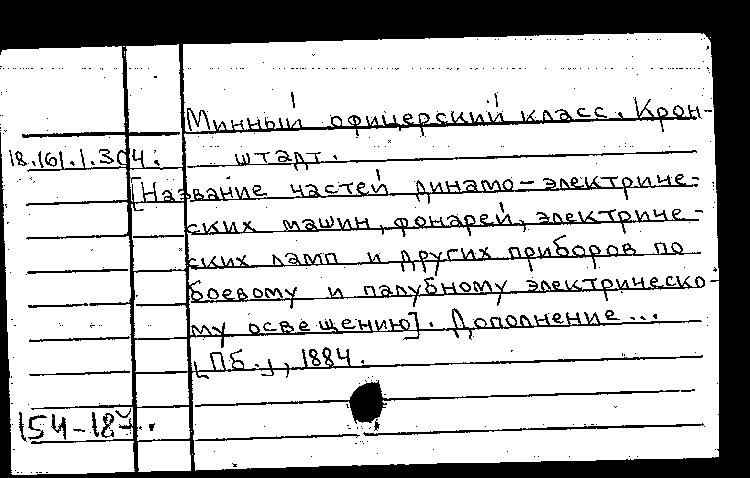 Минный офицерский класс. Крон-
18.161.1.304. штадт.
[Название частей динамо-электриче-
ских машин, фонарей, электриче-
ских ламп и других приборов по
боевому и палубному электрическо-
му освещению]. Дополнение...
[Пб.], 1884.